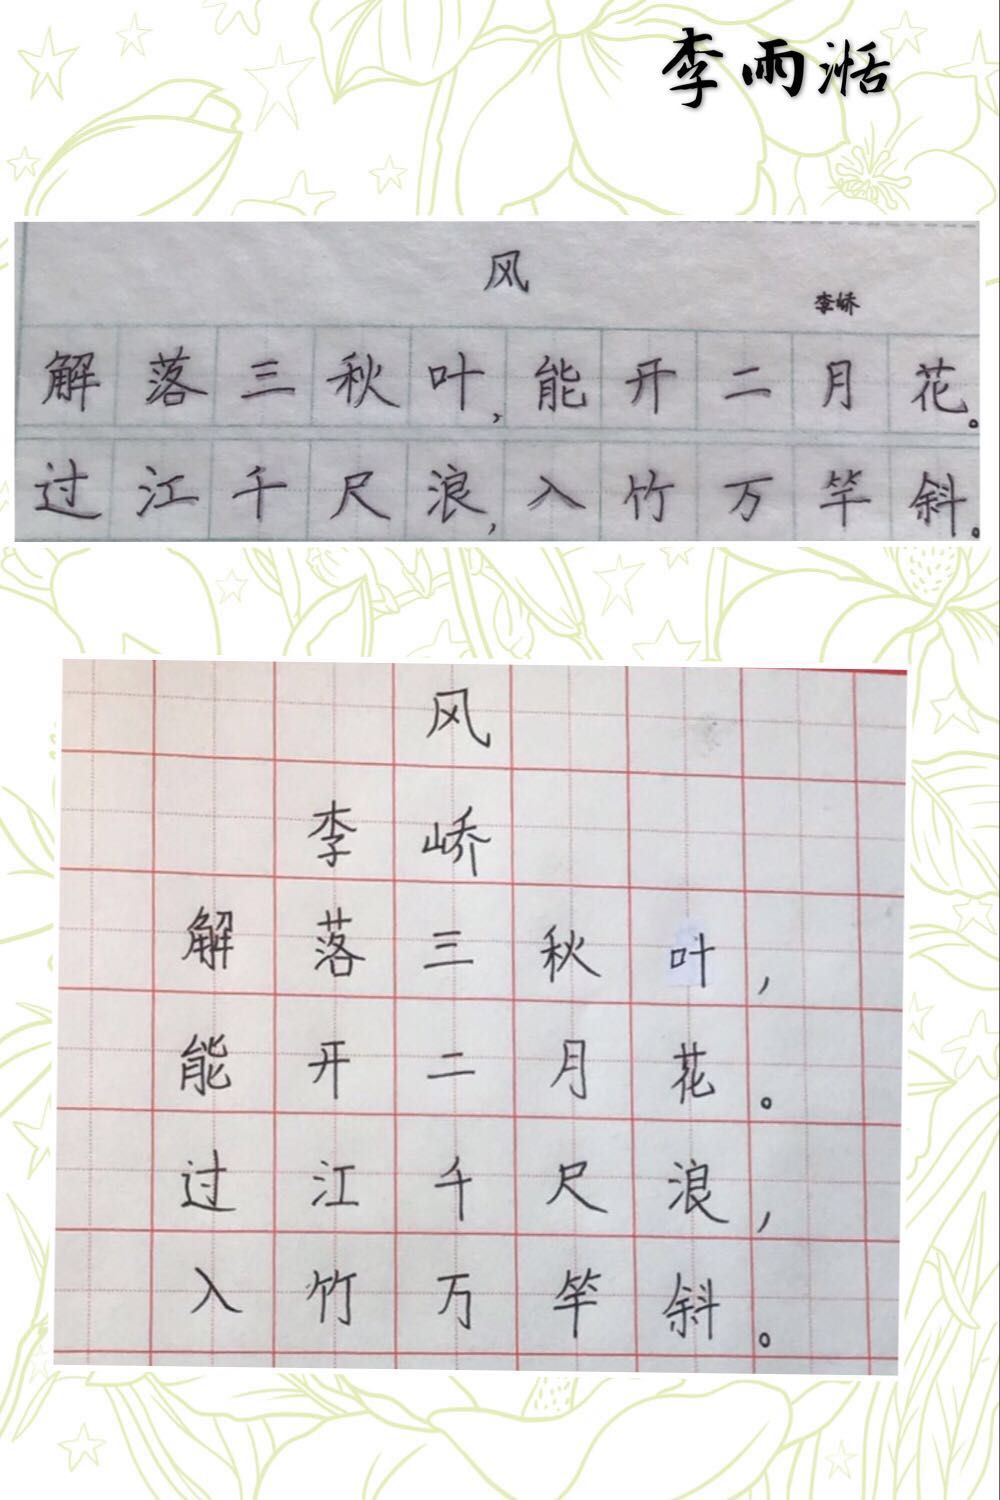 李雨湉
风
李峤
解落三秋叶,能开二月花。
过江千尺浪,入竹万竿斜。
风
李峤
解落三秋叶,
能开二月花。
过江千尺浪,
入竹万竿斜。